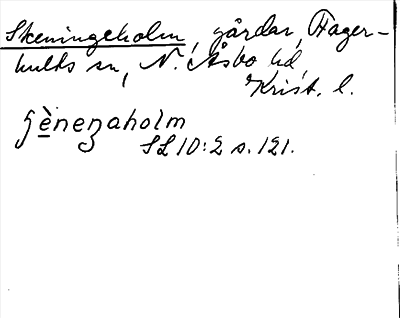 Skeningeholm, gårdar, Hager-
hults sn, N. Åsbo hd
Krist. l.
ʃènenaholm
SL 10:2 s. 121.